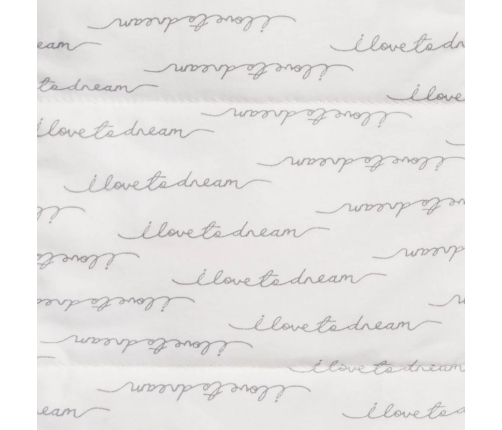 i love to dream
i love to dream
eam
i love to dream
to dream
i love
i love to dream
i love to dream
i love to dream
i love to dream
i love to dream
i love to dream
i love to dream
i love to dream
i love to dream
i love to dream
i love to dream
i love to dream
i love to dream
i love to dream
eam
i love to d